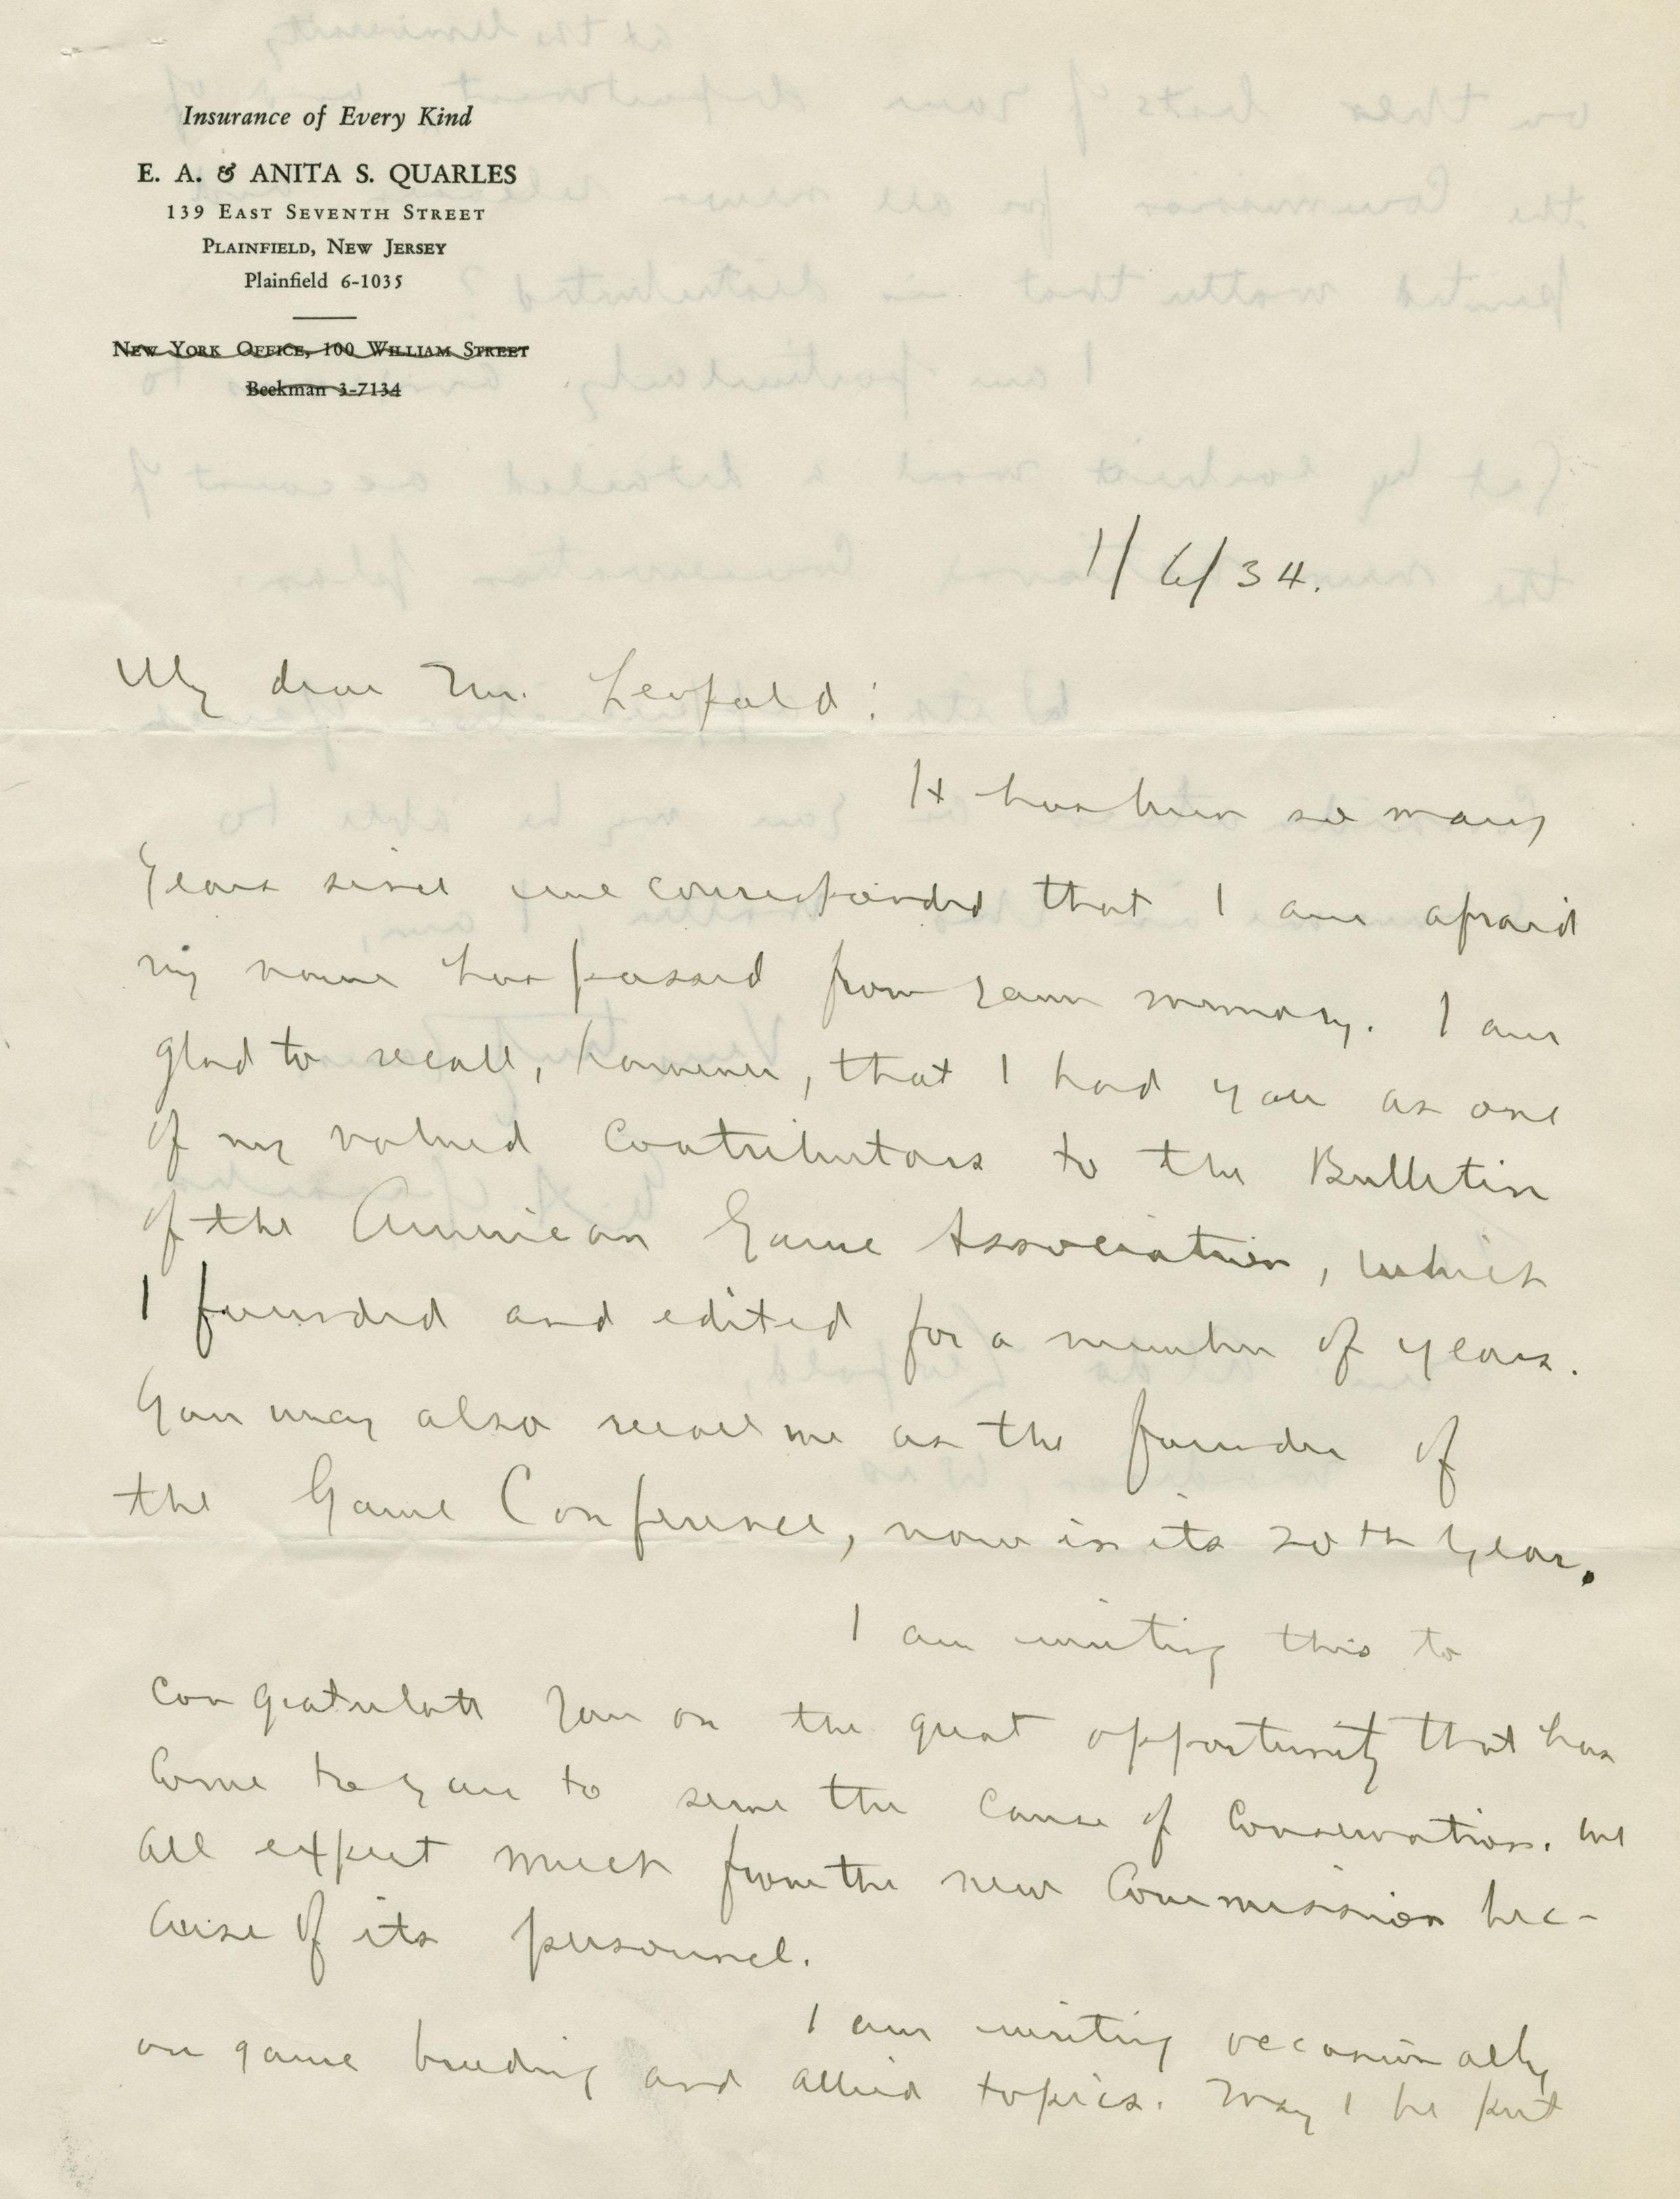 Insurance of Every Kind
E. A. & ANITA S. QUARLES
139 EAST SEVENTH STREET
PLAINFIELD, NEW JERSEY
Plainfield 6-1035
NEW YORK OFFICE, 100 WILLIAM STREET
Beekman 3-7134
1/6/34.
My dear Mr. Leopold:
It has been so many
years since we corresponded that I am afraid
my name has passed from your memory. I am
glad to recall, however, that I had you as one
of my valued contributors to the Bulletin
of the American Game Association, which
I founded and edited for a number of years.
You may also recall me as the founder of
the Game Conference, now in its 20th year.
I am writing this to
congratulate you on the great opportunity that has
come to you to serve the cause of conservation. We
all expect much from the new Commission bec-
ause of its personnel.
I am writing occasionally
on game breeding and allied topics. May I be put